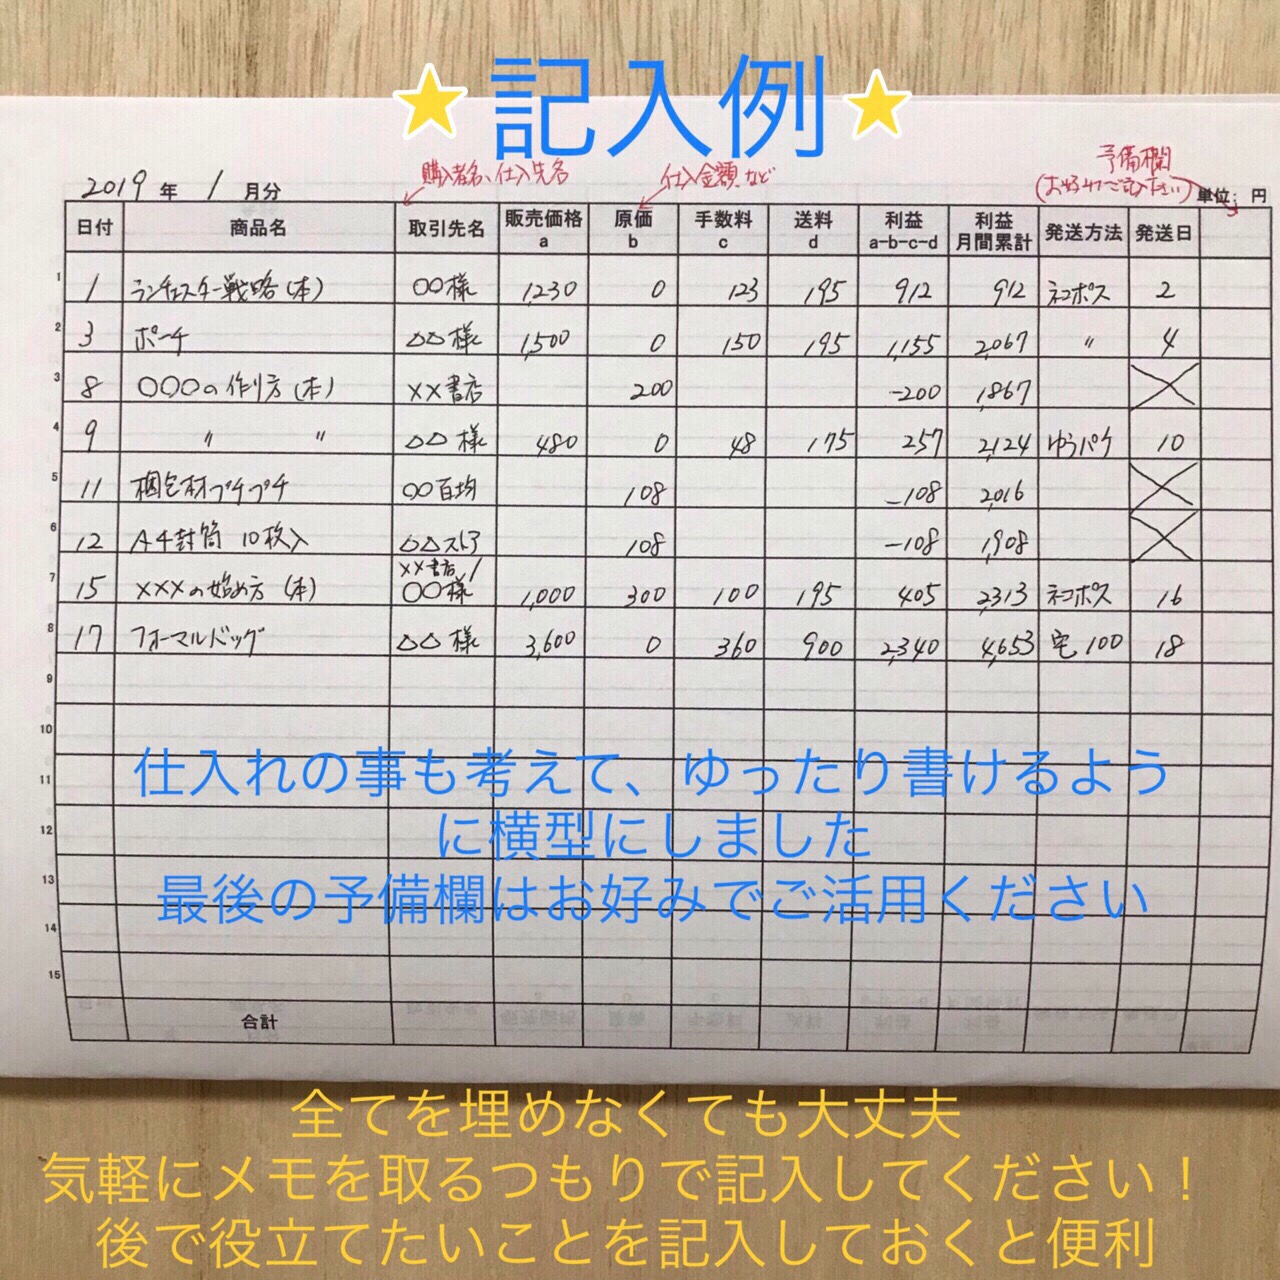 ⭐記入例⭐
購入者名、仕入先名
仕入金額など
予備欄
(お好みでご記入下さい)
2019 年 1 月分
単位：円
日付 商品名 取引先名 販売価格 a 原価 b 手数料 c 送料 d 利益 a-b-c-d 利益 月間累計 発送方法 発送日
1 1 ランチェスター戦略(本) 〇〇様 1,230 0 123 195 912 912 ネコポス 2
2 3 ポーチ △△様 1,500 0 150 195 1,155 2,067 〃 4
3 8 〇〇〇の作り方(本) ××書店 200 -200 1,867
4 9 〃 〃 △△様 480 0 48 175 257 2,124 ゆうパケ 10
5 11 梱包材プチプチ 〇〇百均 108 -108 2,016
6 12 A4封筒 10枚入 △△ストア 108 -108 1,908
7 15 ×××の始め方(本) ××書店/〇〇様 1,000 300 100 195 405 2,313 ネコポス 16
8 17 フォーマルバッグ △△様 3,600 0 360 900 2,340 4,653 宅100 18
9
10
仕入れの事も考えて、ゆったり書けるよう
11
に横型にしました
12
最後の予備欄はお好みでご活用ください
13
14
15
合計
全てを埋めなくても大丈夫
気軽にメモを取るつもりで記入してください！
後で役立てたいことを記入しておくと便利